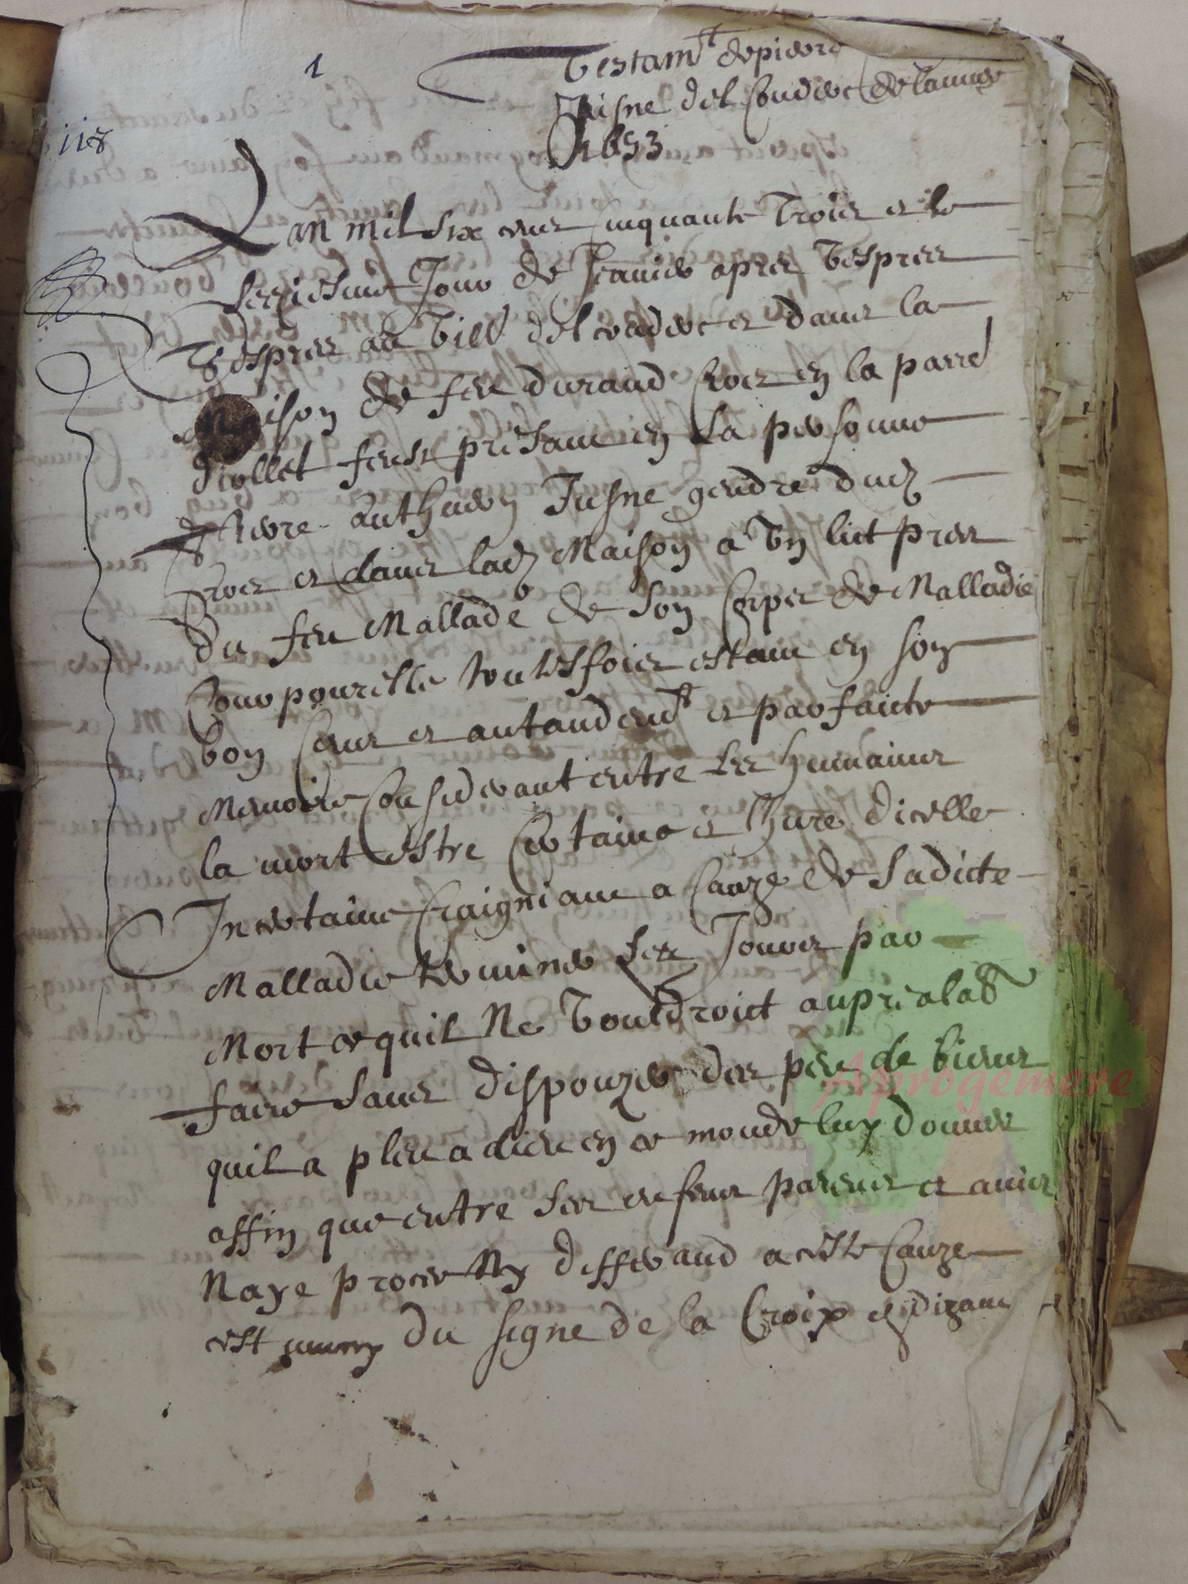 1
118
Testamt de pierre
Jusne del Couderc de lannee
1653
Lan mil six cens Cinquante Trois et le
seziesme Jour de Jeanvier apres Vespres
Vespres au Vill del coderc et dans la
Maison de feu durand Roer en la parre
dicollet feust presant en La personne
Pierre Anthoien Jusne gendre dud
Roer et dans lad Maison a Un lict pres
du feu Mallade de son Corps de Malladie
Courporelle toutesfois estant en son
bon sens et antandemt et parfaicte
Memoire Considerant entre les humains
la mort estre Certaine et lhure dicelle
Incertaine Craigniant a Cauze de sadicte
Malladie terminer ses Jours par
Mort ce quil Ne Vouldroict au prealab
faire sans dispouzer des peu de biens
quil a pleu a dieu en ce monde luy donner
affin que entre ses enfens parens et amis
Naye proces Ny differand a ceste Cauze
est muny du signe de la Croix en dizant
Aprogemere